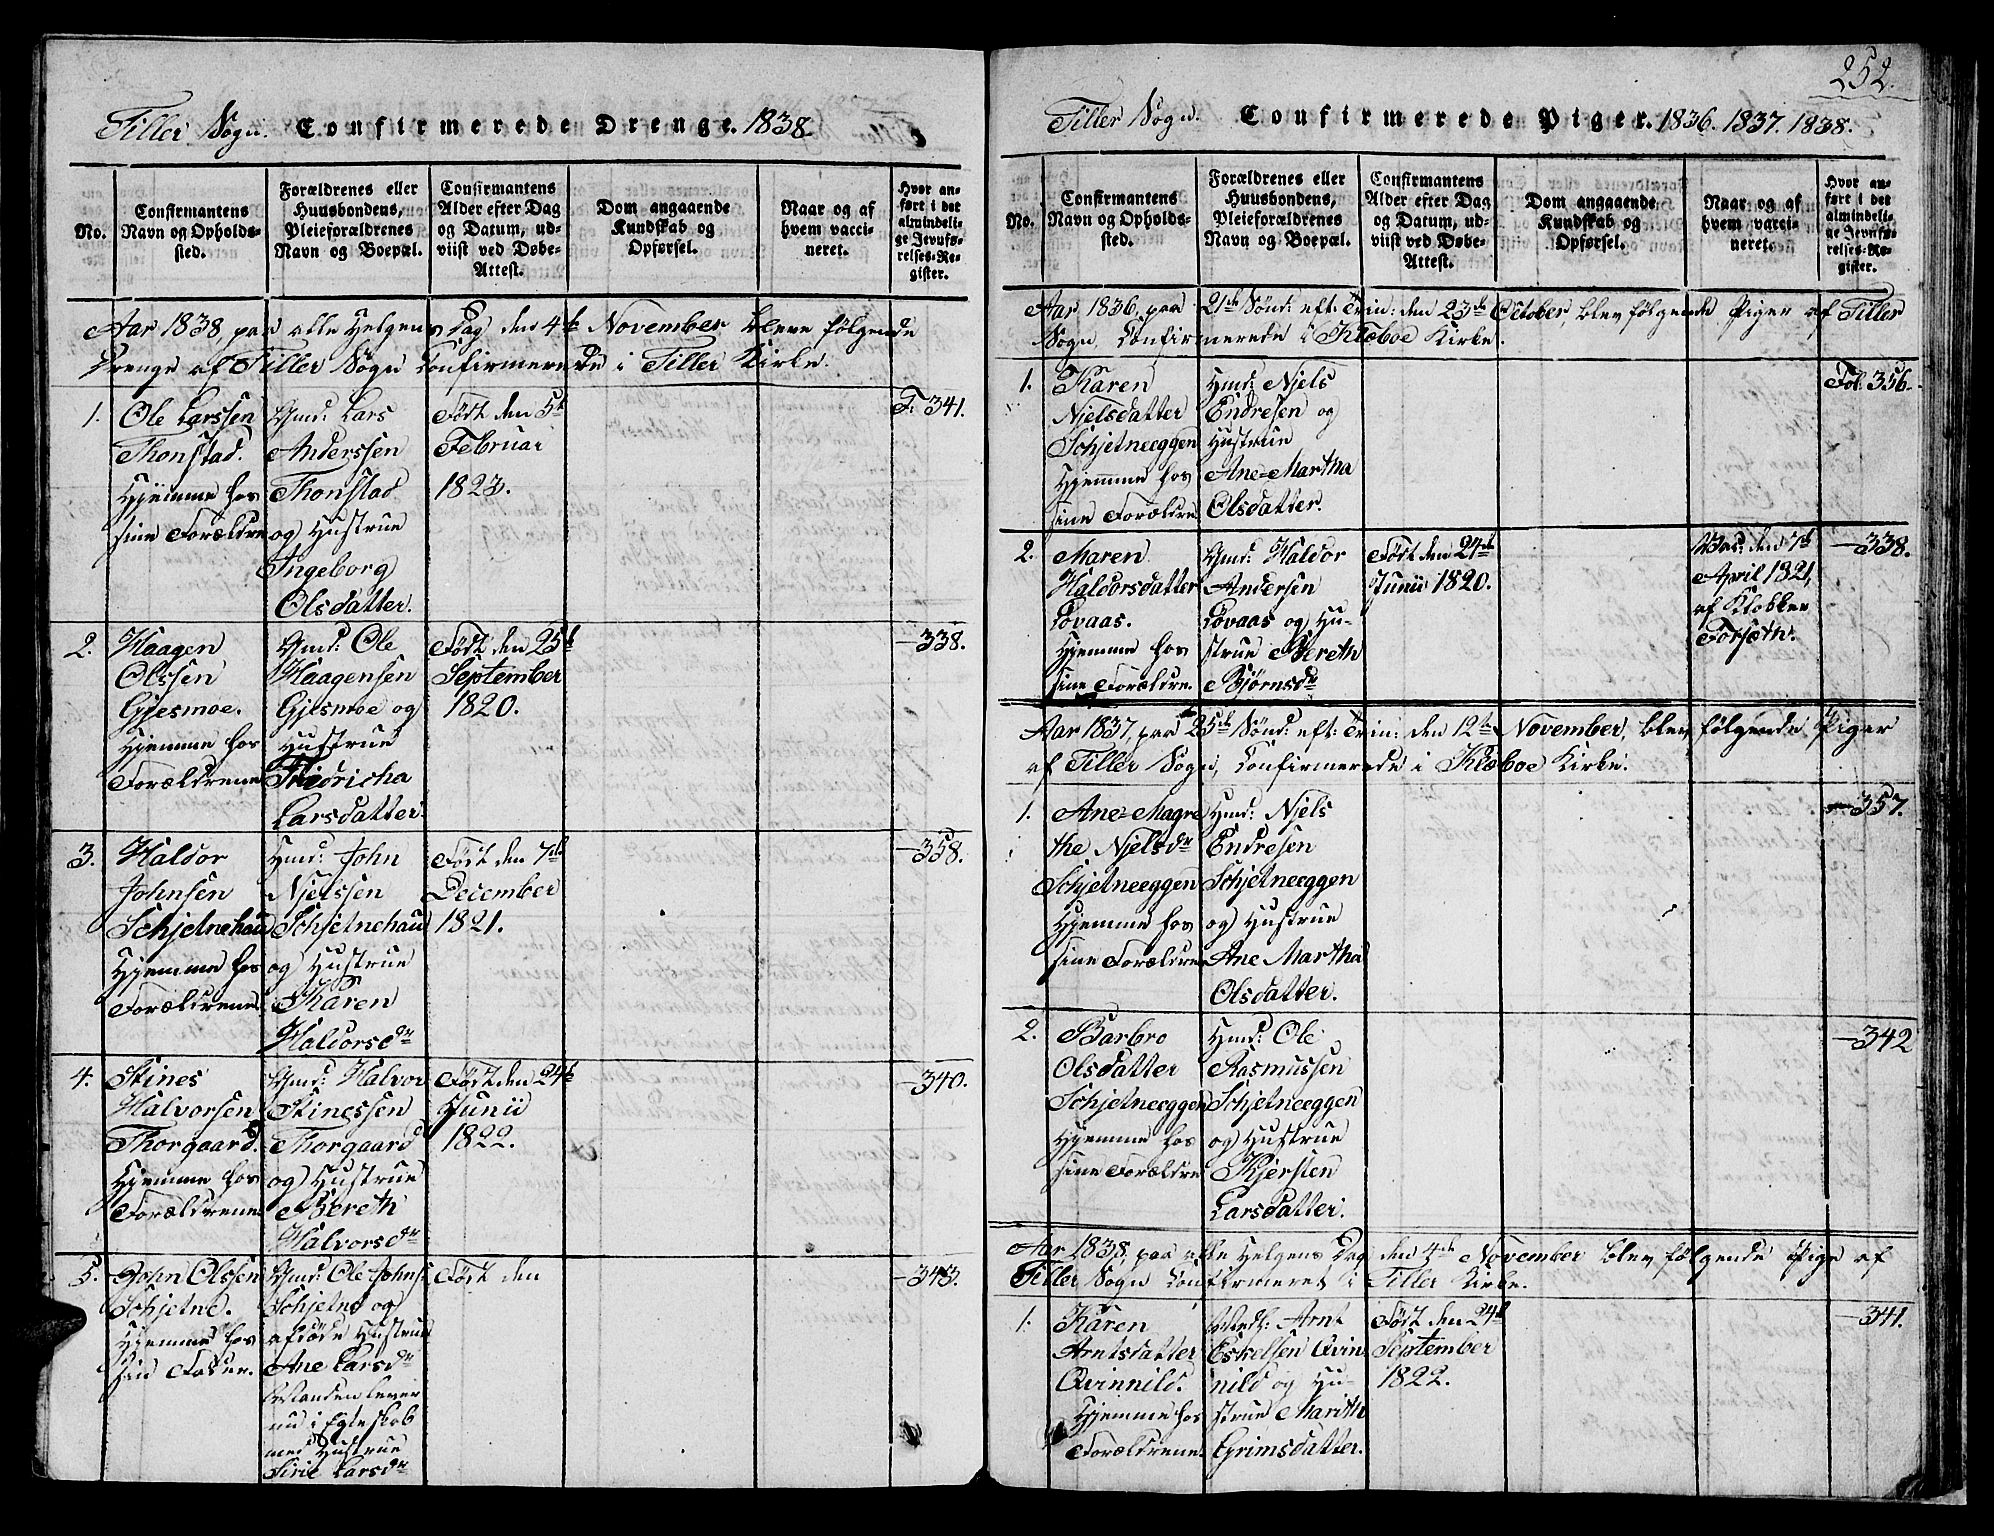 Tiller Sogn. Confirmerede Drenge. 1838
No.
Confirmantens
Navn og Opholds-
sted.
Forældrenes eller
Huusbondens,
Pleieforældrenes
Navn og Boepæl.
Confirmantens
Alder efter Dag
og Datum, ud-
viist ved Døbe-
Attest.
Dom angaaende
Kundskab og
Opførsel.
Naar og af
hvem vacci-
neret.
Hvor an-
ført i det
almindeli-
ge Jevnfø-
relses-Re-
gister.
Aar 1838, paa alle Helgens Dag den 4de November bleve følgende
Drenge af Tiller Sogn Confirmerede i Tiller Kirke.
1. Ole Larssen
Thonstad.
Hjemme hos
sine Forældre
Gmd: Lars
Anderssen
Thonstad
og Hustrue
Ingeborg
Olsdatter.
Født den 5t
Februar
1823.
F. 341.
2. Haagen
Olssen
Gjesmoe.
Hjemme hos
Forældrene
Gmd: Ole
Haagensen
Gjesmoe og
Hustrue
Fredricha
Larsdatter.
Født den 25t
September
1820.
—338.
3. Haldor
Johnsen
Schjetnehau
Hjemme hos
Forældrene.
Hmd: John
Njelssen
Schjetnehau
og Hustrue
Karen
Haldorsdr
Født den 7de
December
1821.
—358.
4. Stines
Halvorsen
Thorgaard.
Hjemme hos
Forældrene.
Gmd: Halvor
Stinessen
Thorgaard
og Hustrue
Bereth
Halvorsdr
Født den 24t
Junii
1822.
—340.
5. John Olssen
Schjetne.
Hjemme hos
sin Fader.
Gmd: Ole Johns:
Schjetne og
afdøde Hustrue
Ane Larsdr
nu i Egteskab
med Hustrue
Sirie Larsdr
Født den
—343.
252.
Tiller Sogn. Confirmerede Piger. 1836. 1837. 1838.
No.
Confirmantens
Navn og Opholds-
sted.
Forældrenes eller
Huusbondens,
Pleieforældrenes
Navn og Boepæl.
Confirmantens
Alder efter Dag
og Datum, ud-
viist ved Døbe-
Attest.
Dom angaaende
Kundskab og
Opførsel.
Naar og af
hvem vacci-
neret.
Hvor an-
ført i det
almindeli-
ge Jevnfø-
relses-Re-
gister.
Aar 1836, paa 21de Sønd: eft: Trin: den 23de October, blev følgende Piger af Tiller
Sogn, Confirmerede i Klæboe Kirke.
1. Karen
Njelsdatter
Schjetneeggen
Hjemme hos
sine Forældre
Hmd: Njels
Endresen og
Hustrue
Ane-Martha
Olsdatter.
Fol. 356.
2. Maren
Haldorsdatter
Løvaas.
Hjemme hos
sine Forældre.
Gmd: Haldor
Andersen
Løvaas og Hu-
strue Bereth
Bjørnsdr
Født den 24de
Junii 1820.
Vac: den 7de
April 1821,
af Klokker
Forsæth.
—338.
Aar 1837, paa 25de Sønd: eft: Trin: den 12te November, blev følgende Piger
af Tiller Sogn, Confirmerede i Klæboe Kirke.
1. Ane-Magre
the Njelsdr
Schjetneeggen
Hjemme hos
sine Forældre
Hmd: Njels
Endresen
Schjetneeggen
og Hustrue
Ane Martha
Olsdatter.
—357.
2. Barbro
Olsdatter
Schjetneeggen
Hjemme hos
sine Forældre
Hmd: Ole
Rasmussen
Schjetneeggen
og Hustrue
Kjersten
Larsdatter.
—342
Aar 1838, paa alle Helgens Dag den 4de November blev følgende Pige af
Tiller Sogn Confirmeret i Tiller Kirke.
1. Karen
Arntsdatter
Qvinnild.
Hjemme hos
Forældrene.
Arnt
Eskelsen Qvin
nild og Hu-
strue Marith
Grimsdatter.
Født den 24t
September
1822.
—341.